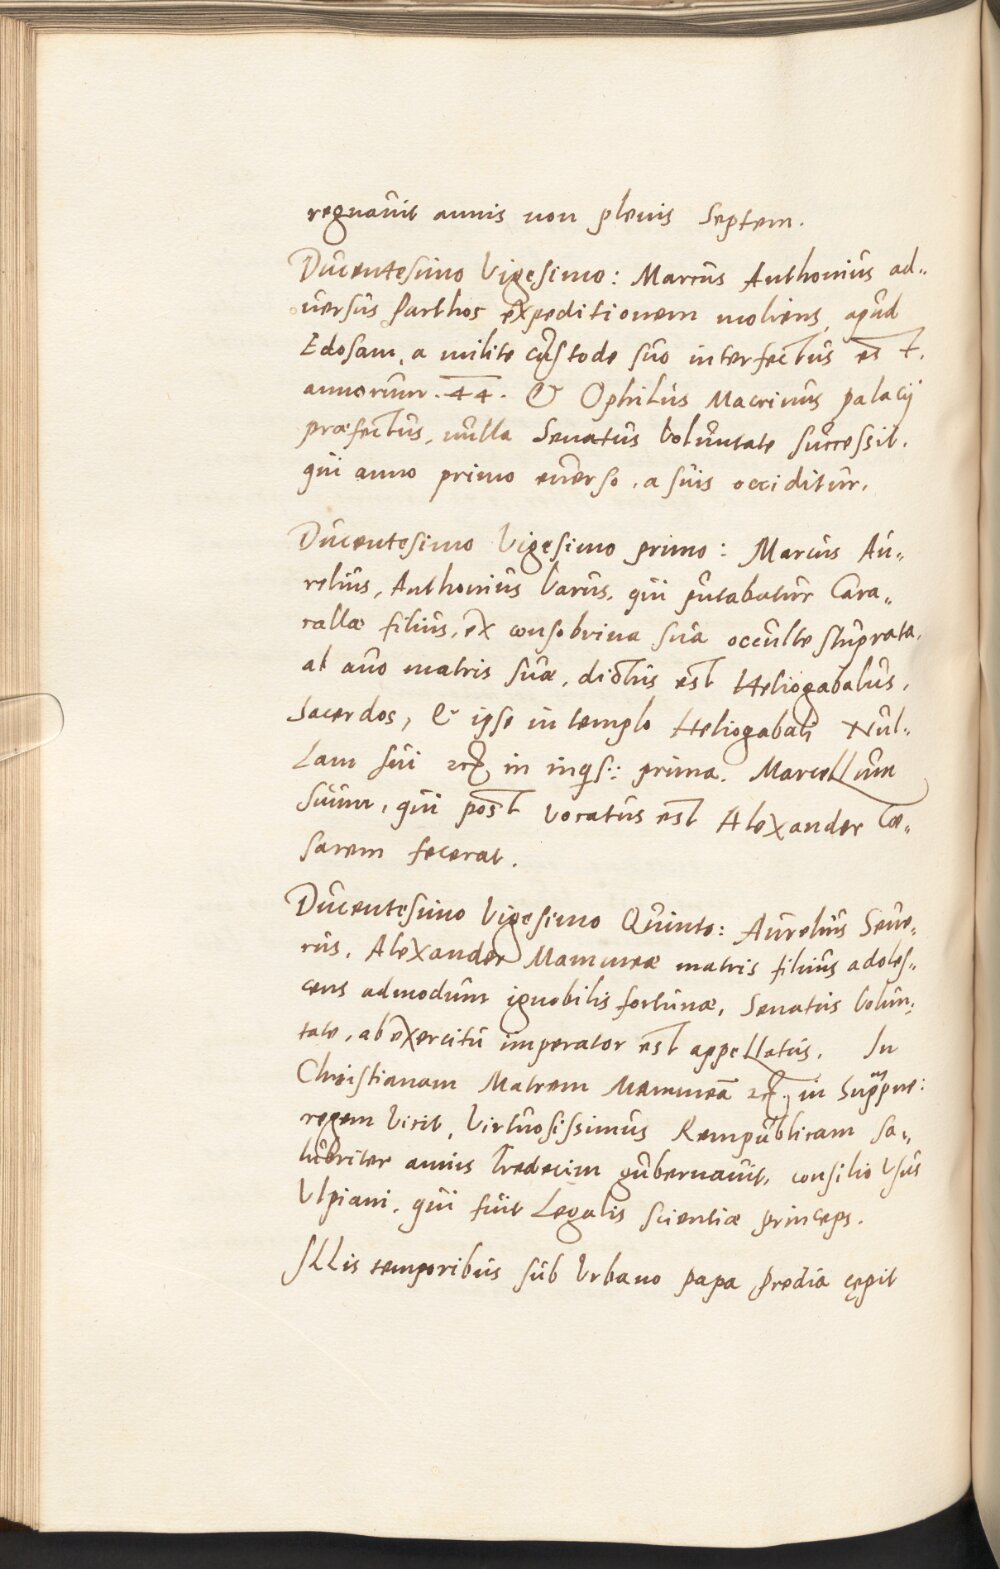 regnauit annis non plenis Septem.
Ducentesimo Vigesimo: Marcus Anthonius ad„
uersus Parthos expeditionem moliens, apud
Edosam, a milite custode suo interfectus est.
annorum . 44 . & Ophilus Macrinus palacij
præfectus, nulla Senatus voluntate successit.
qui anno primo euerso, a suis occiditur.
Ducentesimo Vigesimo primo: Marcus Au„
relius, Anthonius Varus, qui putabatur Cara„
callæ filius, ex consobrina sua occulte stuprata.
at auo matris suæ, dictus est Heliogabalus,
Sacerdos, & ipse in templo Heliogabali Nul„
lam sui in prima. Marcellum
suum, qui post vocatus est Alexander Cæ„
sarem fecerat.
Ducentesimo Vigesimo Quinto: Aurelius Seue„
rus, Alexander Mammeæ matris filius adoles„
cens admodum ignobilis fortunæ, Senatus volun„
tate, ab exercitu imperator est appellatus. In
Christianam Matrem Mammeā in
regem vicit, Virtuosissimus Rempublicam sa„
lubriter annis Tredecim gubernauit, consilio Vsus
Vlpiani, qui fuit Legalis scientiæ princeps.
Illis temporibus sub Vrbano papa predia cępit